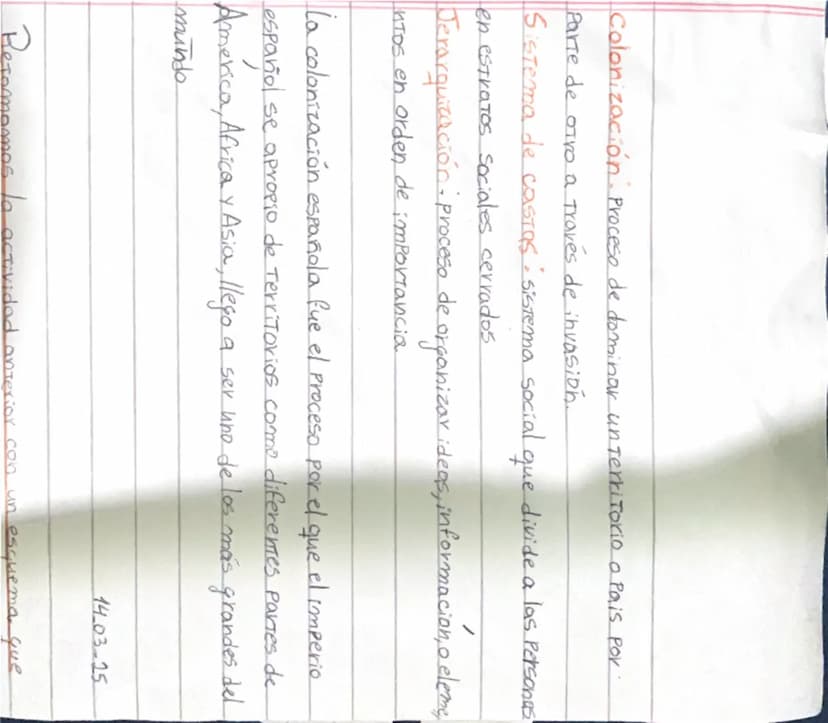 Colonización: Proceso de dominar un Territorio o País por
Parte de otro a Través de invasión.
Sistema de castas: sistema social que divide a las Personas
en estratos sociales cerrados
Jerarquización: Proceso de organizar ideas, información, o eleme
ntos en orden de importancia
la colonización española fue el Proceso por el que el imperio
español se apropio de Territorios como diferentes partes de
América, África y Asia, llego a ser uno de los más grandes del
mundo
14-03-25
Retomamos la actividad anterior con un esquema que